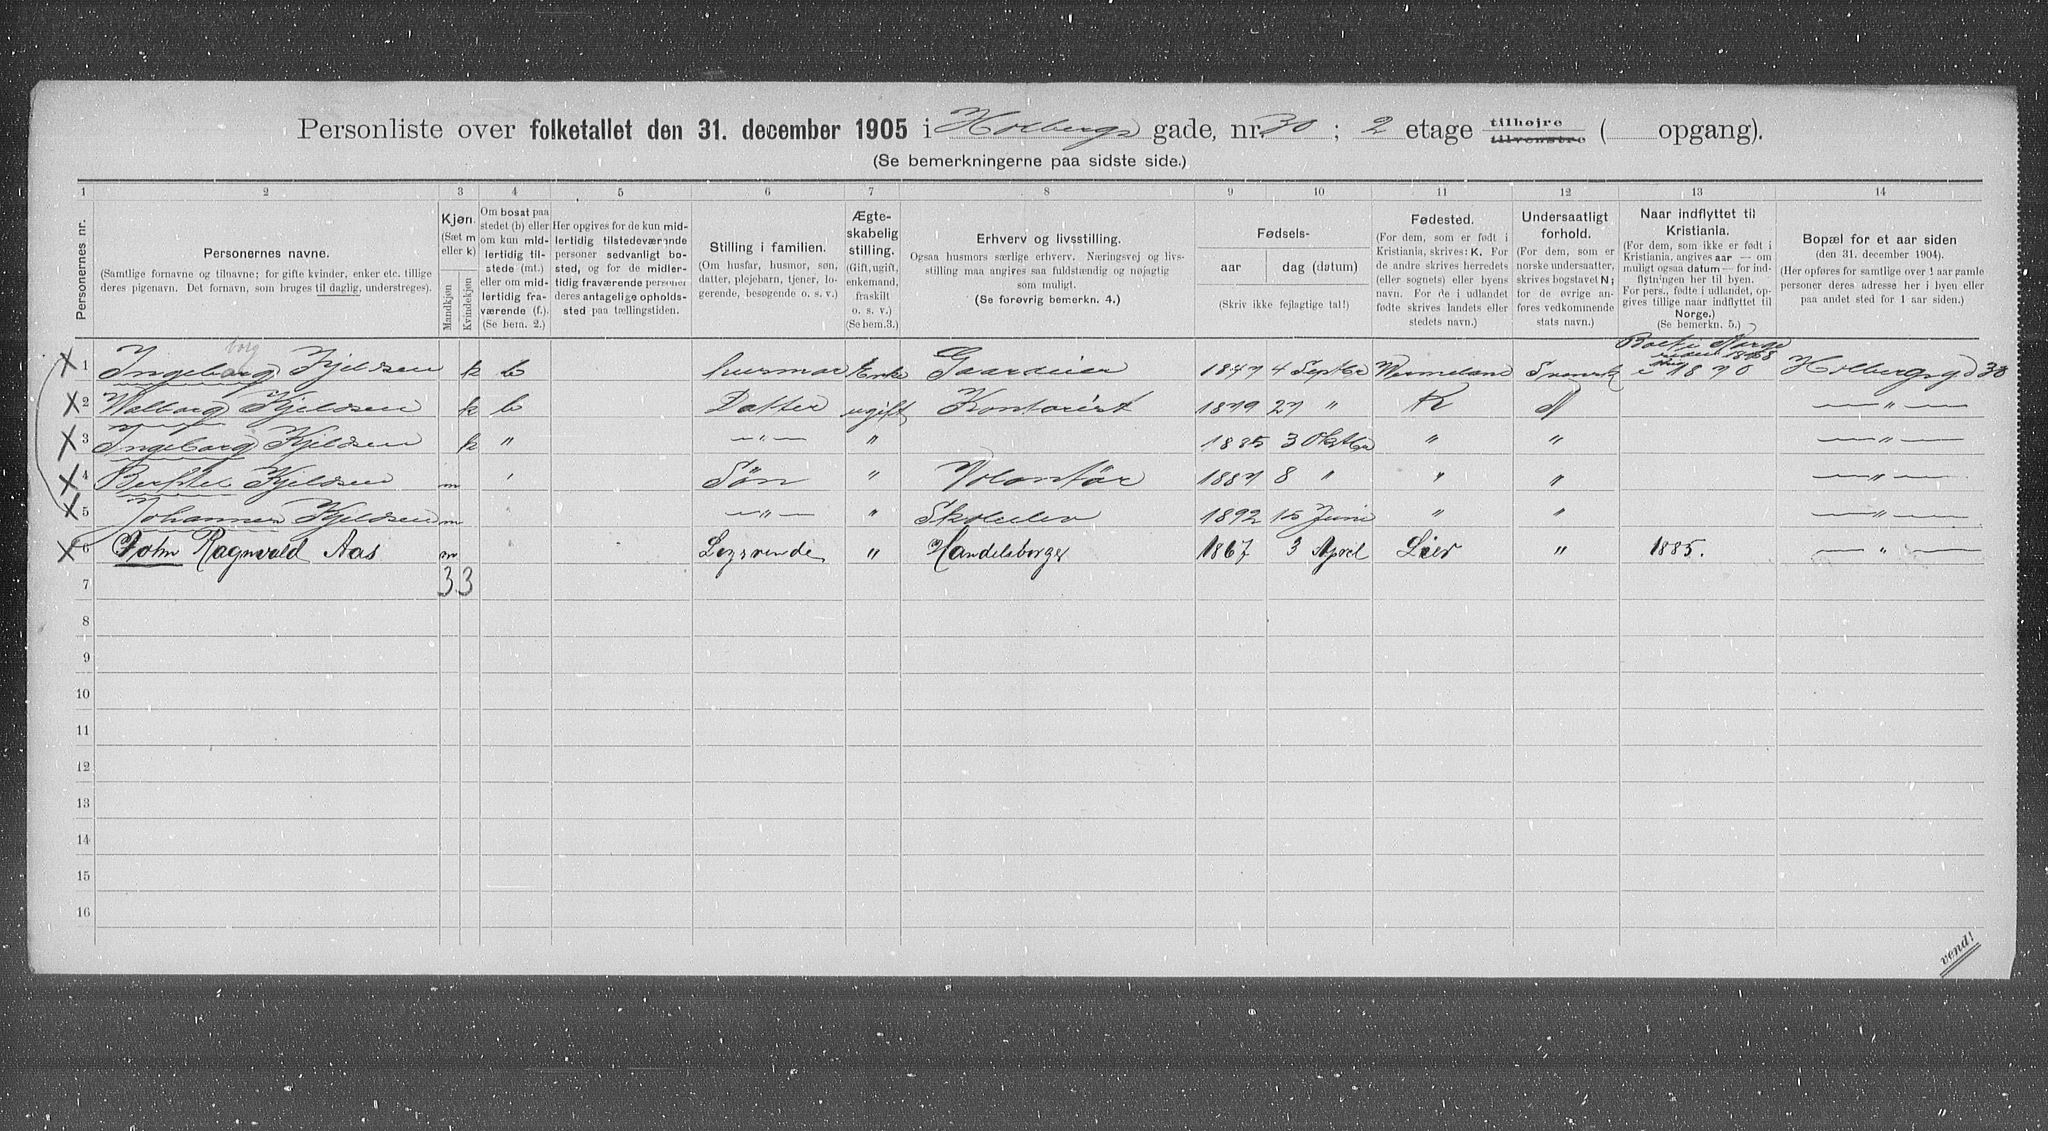 Personliste over folketallet den 31. december 1905 i Holbergs gade, nr. 30 ; 2 etage tilhøjre tilvenstre ( opgang).
(Se bemerkningerne paa sidste side.)
1 2 3 4 5 6 7 8 9 10 11 12 13 14
Personernes nr.
Personernes navne.
(Samtlige fornavne og tilnavne; for gifte kvinder, enker etc. tillige
deres pigenavn. Det fornavn, som bruges til daglig, understreges).
Kjøn.
(Sæt m
eller k)
Mandkjøn
Kvindekjøn
Om bosat paa
stedet (b) eller
om kun mid-
lertidig til-
stede (mt.)
eller om mid-
lertidig fra-
værende (f.).
(Se bem. 2.)
Her opgives for de kun mid-
lertidig tilstedeværende
personer sedvanligt bo-
sted, og for de midler-
tidig fraværende personer
deres antagelige opholds-
sted paa tællingstiden.
Stilling i familien.
(Om husfar, husmor, søn,
datter, plejebarn, tjener, lo-
gerende, besøgende o. s. v.)
Ægte-
skabelig
stilling.
(Gift, ugift,
enkemand,
fraskilt
o. s. v.)
(Se bem.3.)
Erhverv og livsstilling.
Ogsaa husmors særlige erhverv. Næringsvej og livs-
stilling maa angives saa fuldstændig og nøjagtig
som muligt.
(Se forøvrig bemerkn. 4.)
Fødsels-
aar dag (datum)
(Skriv ikke fejlagtige tal!)
Fødested.
(For dem, som er født i
Kristiania, skrives: K. For
de andre skrives herredets
(eller sognets) eller byens
navn. For de i udlandet
fødte skrives landets eller
stedets navn.)
Undersaatligt
forhold.
(For dem, som er
norske undersaatter,
skrives bogstavet N;
for de øvrige an-
føres vedkommende
stats navn.)
Naar indflyttet til
Kristiania.
(For dem, som ikke er født i
Kristiania, angives aar — om
muligt ogsaa datum — for ind-
flytningen her til byen.
For pers., fødte i udlandet, op-
gives tillige naar indflyttet til
Norge.)
(Se bemerkn. 5.)
Bopæl for et aar siden
(den 31. december 1904).
(Her opføres for samtlige over 1 aar gamle
personer deres adresse her i byen eller
paa andet sted for 1 aar siden.)
borg Boet i Norge
siden 1868
1 Ingeborg Kjeldsen k b husmor Enke Gaardeier 1847 4 Septbr Wermeland Svensk i 1870 Holbergsgd 30
2 Walborg Kjeldsen k b Datter ugift Kontorist 1879 27 " K N — " —
3 Ingeborg Kjeldsen k " — " — " 1885 3 Oktbr " " — " —
4 Berthel Kjeldsen m ' Søn " Volontør 1887 8 " " " — " —
5 Johannes Kjeldsen m — " — " Skoleelev 1892 15 Juni " " — " —
6 John Ragnvald Aas m Logerende " Handelsborger 1867 3 April Lier " 1885. — " —
7 3 3
8
9
10
11
12
13
14
15
16
vend!